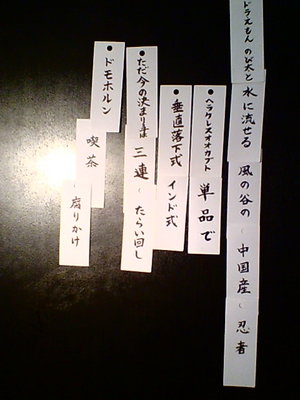 ドラえもん のび太と 水に流せる 風の谷の 〜中国産 〜忍者
ヘラクレスオオカブト 単品で
垂直落下式 インド式
ただ今の決まり手は 三連 〜たらい回し
ドモホルン 喫茶 腐りかけ